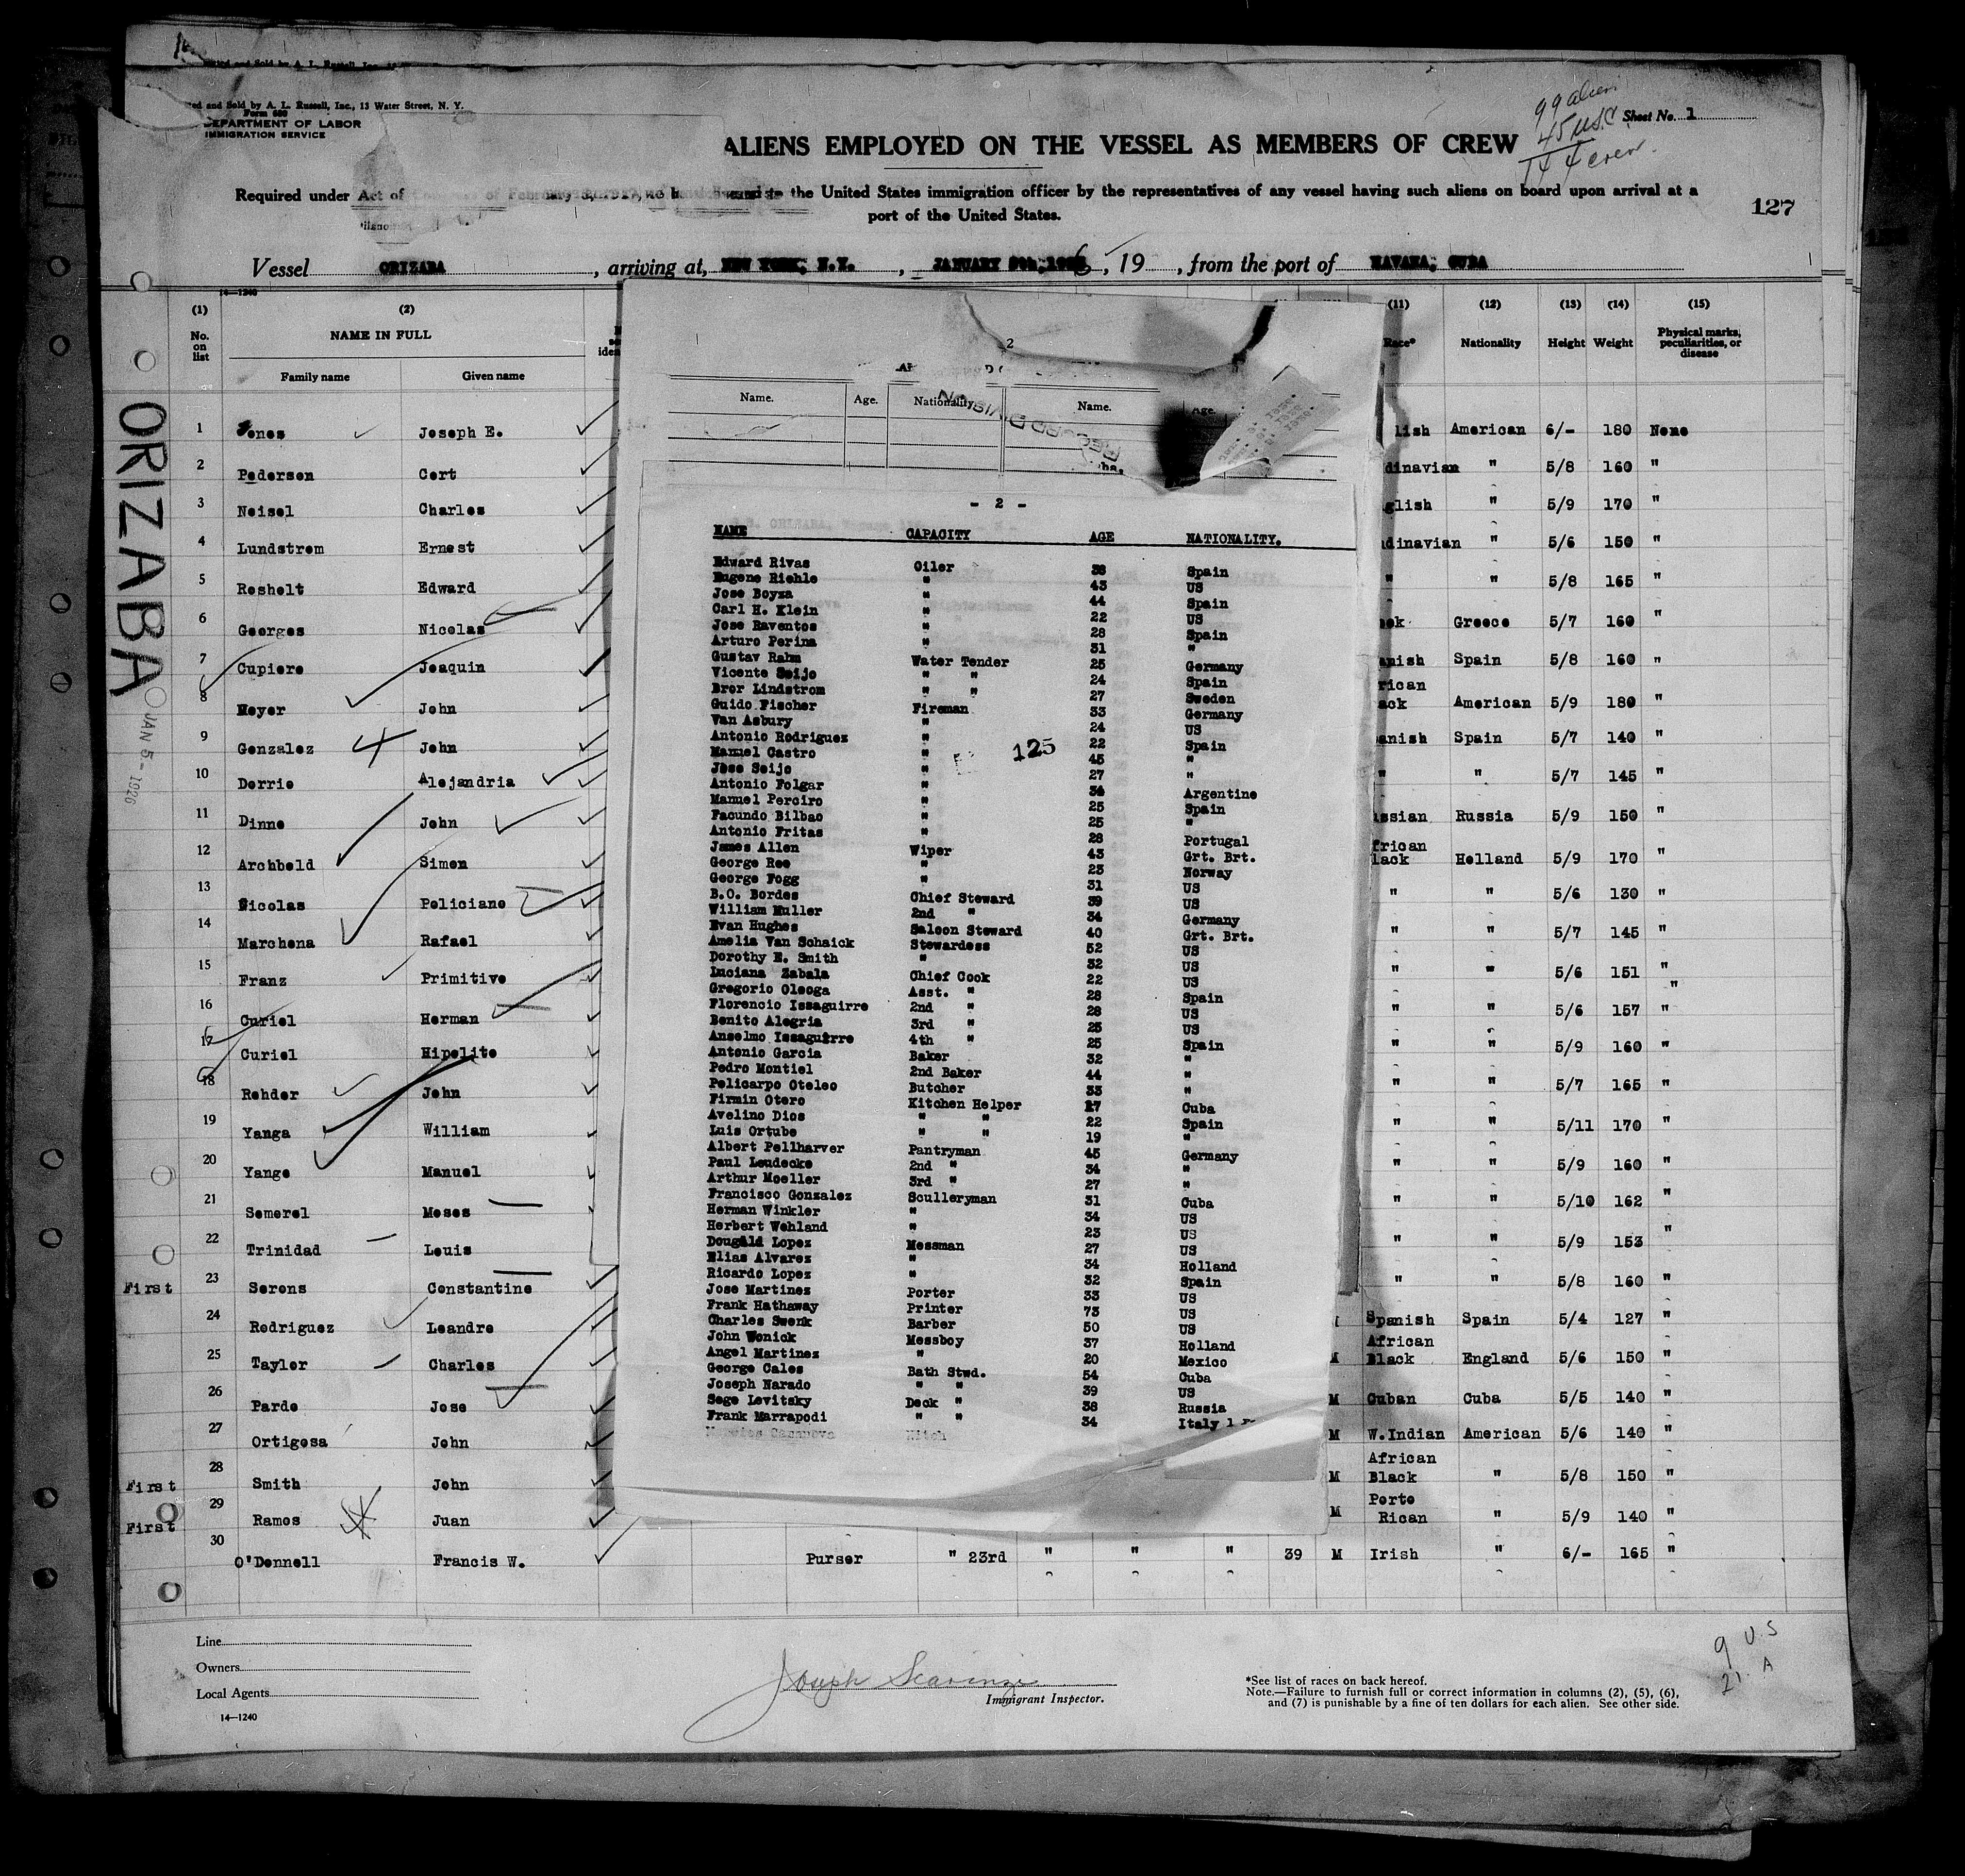 ed and Sold by A. L. Russell, Inc., 13 Water Street, N. Y.
Form 680
DEPARTMENT OF LABOR
IMMIGRATION SERVICE
99 alien
45 USC
144 crew
Sheet No. 1
ALIENS EMPLOYED ON THE VESSEL AS MEMBERS OF CREW
Required under Act of of February the United States immigration officer by the representatives of any vessel having such aliens on board upon arrival at a
port of the United States.
127
Vessel ORIZABA, arriving at, NEW YORK, N.Y., JANUARY 5th, 1926, 19, from the port of HAVANA, CUBA
14—1240
(1) (2) (11) (12) (13) (14) (15)
No. on list NAME IN FULL Race* Nationality Height Weight Physical marks, peculiarities, or disease
Family name Given name
ORIZABA
JAN 5 - 1926
1 Jones Joseph E. lish American 6/- 180 None
2 Pedersen Cert dinavian " 5/8 160 "
3 Neisel Charles glish " 5/9 170 "
4 Lundstrom Ernest dinavian " 5/6 150 "
5 Resholt Edward " " 5/8 165 "
6 Georges Nicolas ek Greece 5/7 160 "
7 Cupiere Joaquin anish Spain 5/8 160 "
8 Meyer John rican ack American 5/9 180 "
9 Gonzalez John anish Spain 5/7 140 "
10 Derrie Alejandria " " 5/7 145 "
11 Dinne John ssian Russia 5/9 150 "
12 Archbold Simon frican lack Holland 5/9 170 "
13 Nicolas Policiano " " 5/6 130 "
14 Marchena Rafael " " 5/7 145 "
15 Franz Primitive " " 5/6 151 "
16 Curiel Herman " " 5/6 157 "
17 Curiel Hipolite " " 5/9 160 "
18 Rehder John " " 5/7 165 "
19 Yanga William " " 5/11 170 "
20 Yange Manuel " " 5/9 160 "
21 Semerel Moses " " 5/10 162 "
22 Trinidad Louis " " 5/9 153 "
First 23 Serons Constantine " " 5/8 160 "
24 Rodriguez Leandre Spanish Spain 5/4 127 "
25 Tayler Charles M African Black England 5/6 150 "
26 Pardo Jose M Cuban Cuba 5/5 140 "
27 Ortigosa John M W.Indian American 5/6 140 "
First 28 Smith John M African Black " 5/8 150 "
First 29 Ramos Juan M Porto Rican " 5/9 140 "
30 O'Donnell Francis W. Purser " 23rd " " " 39 M Irish " 6/- 165 "
2
Name. Age. Nationality Name. Age.
RECORD DIVISION
- 2 -
NAME CAPACITY AGE NATIONALITY.
Edward Rivas Oiler 38 Spain
Eugene Riehle " 43 US
Jose Boyza " 44 Spain
Carl H. Klein " 22 US
Jose Raventos " 28 Spain
Arturo Perina " 31 "
Gustav Rahm Water Tender 25 Germany
Vicente Seijo " " 24 Spain
Bror Lindstrom " " 27 Sweden
Guido Fischer Fireman 33 Germany
Van Asbury " 24 US
Antonio Rodriguez " 22 Spain
Manuel Castro " 45 "
Jose Seijo " 27 "
Antonio Folgar " 34 Argentine
Manuel Perciro " 25 Spain
Facundo Bilbao " 25 "
Antonio Fritas " 28 Portugal
James Allen Wiper 43 Grt. Brt.
George Roe " 23 Norway
George Fogg " 31 US
B.O. Bordes Chief Steward 39 US
William Muller 2nd " 34 Germany
Evan Hughes Saloon Steward 40 Grt. Brt.
Amelia Van Schaick Stewardess 52 US
Dorothy E. Smith " 32 US
Luciana Zabala Chief Cook 22 US
Gregorio Oleoga Asst. " 28 Spain
Florencio Issaguirre 2nd " 28 US
Benito Alegria 3rd " 25 US
Anselmo Issaguirre 4th " 25 Spain
Antonio Garcia Baker 32 "
Pedro Montiel 2nd Baker 44 "
Policarpo Oteleo Butcher 33 "
Firmin Otero Kitchen Helper 27 Cuba
Avelino Dios " " 22 Spain
Luis Ortube " " 19 "
Albert Pellharver Pantryman 45 Germany
Paul Leudecke 2nd " 34 "
Arthur Moeller 3rd " 27 "
Francisco Gonzalez Sculleryman 31 Cuba
Herman Winkler " 34 US
Herbert Wehland " 23 US
Dougald Lopez Messman 27 US
Elias Alvarez " 34 Holland
Ricardo Lopez " 32 Spain
Jose Martinez Porter 33 US
Frank Hathaway Printer 73 US
Charles Swenk Barber 50 US
John Wonick Messboy 37 Holland
Angel Martinez " 20 Mexico
George Cales Bath Stwd. 54 Cuba
Joseph Narado " " 39 US
Sege Levitsky Deck " 38 Russia
Frank Marrapodi " " 34 Italy
125
Line
Owners
Local Agents
14—1240
Joseph Scaringe
Immigrant Inspector.
*See list of races on back hereof.
Note.—Failure to furnish full or correct information in columns (2), (5), (6),
and (7) is punishable by a fine of ten dollars for each alien. See other side.
9 U.S
21 A